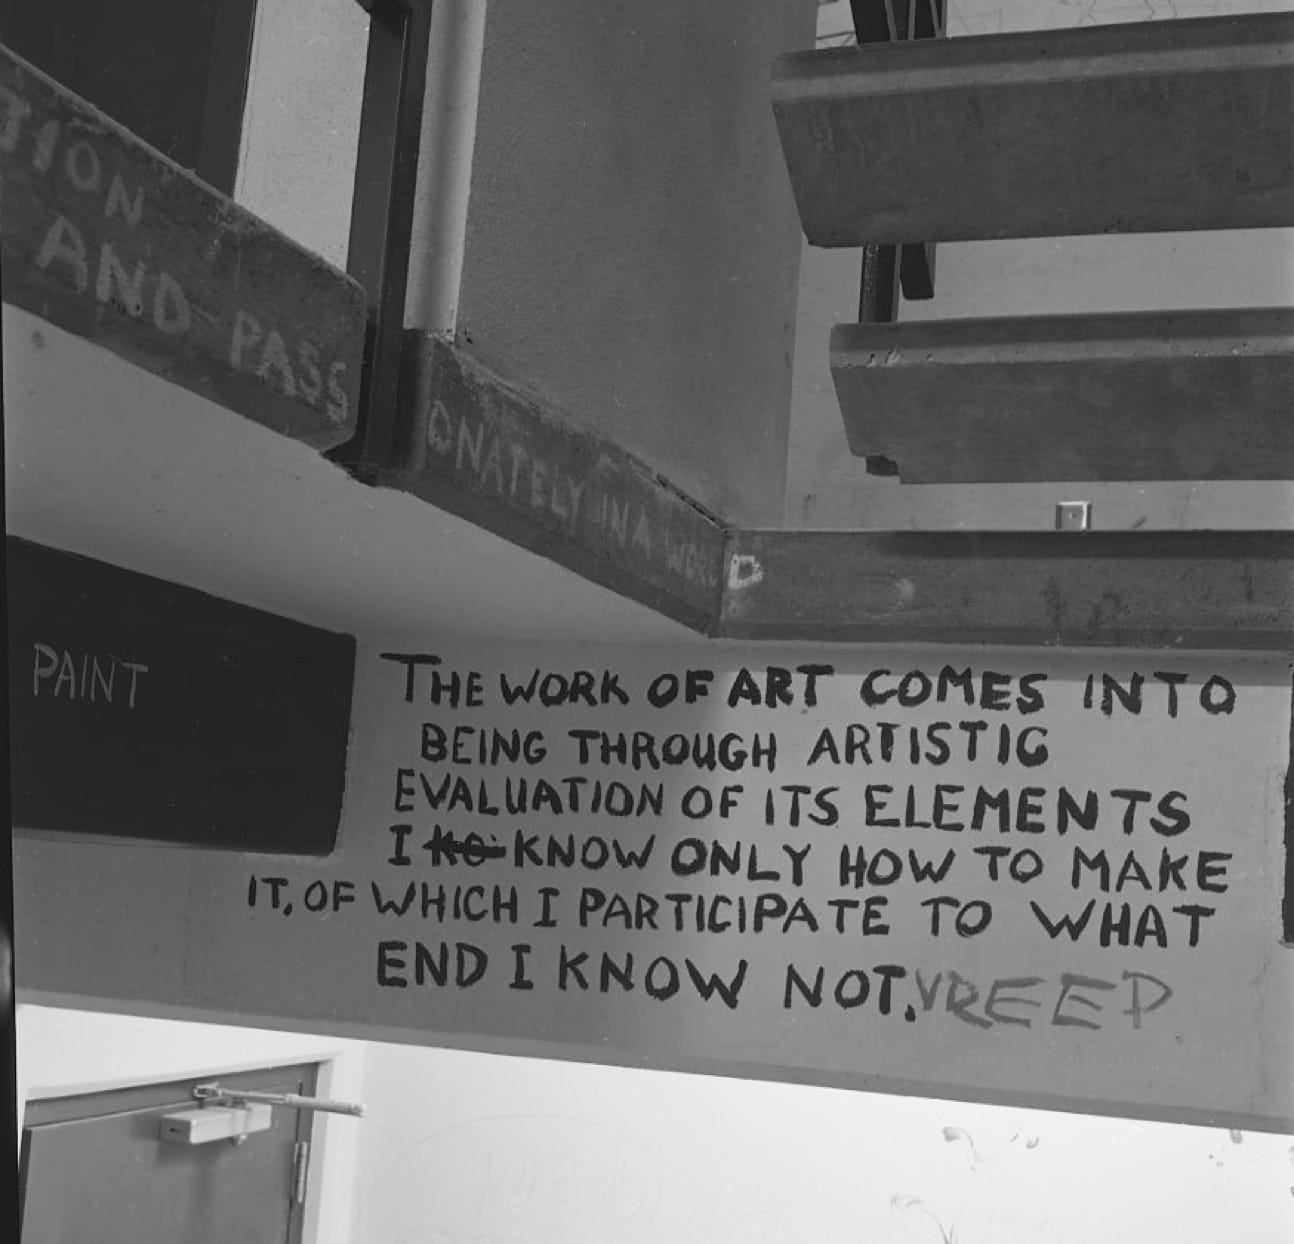 TION
AND PASS
ONATELY IN A WORL
D
PAINT
THE WORK OF ART COMES INTO
BEING THROUGH ARTISTIC
EVALUATION OF ITS ELEMENTS
I KNOW ONLY HOW TO MAKE
IT, OF WHICH I PARTICIPATE TO WHAT
END I KNOW NOT. VREEP